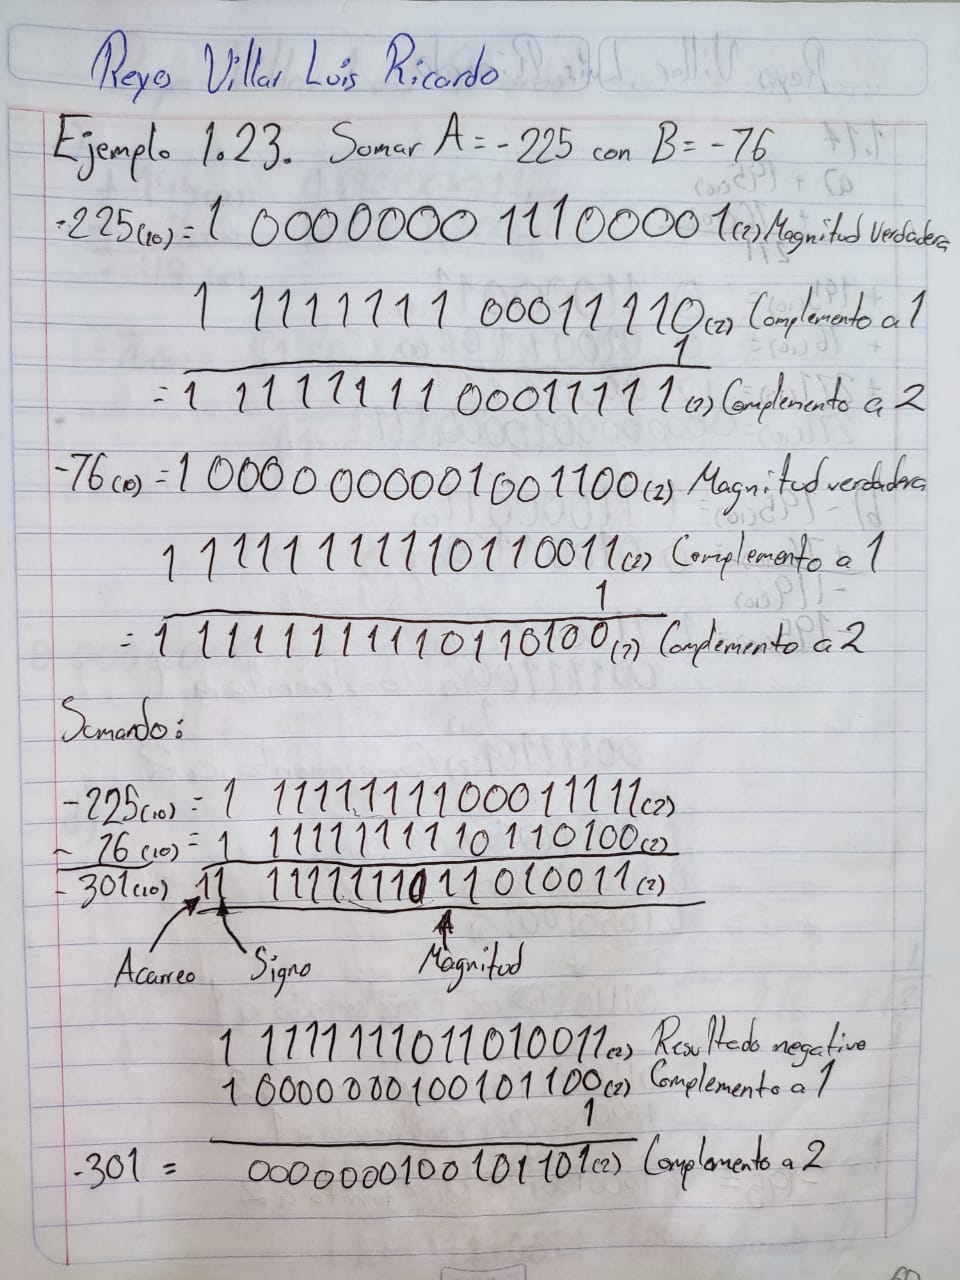 Reyes Villar Luis Ricardo
Ejemplo 1.23. Sumar A = -225 con B = -76
-225(10) = 1 0000000 11100001(2) Magnitud Verdadera
1 1111111 00011110(2) Complemento a 1
1
= 1 1111111 00011111(2) Complemento a 2
-76(10) = 1 000000001001100(2) Magnitud verdadera
1 111111110110011(2) Complemento a 1
1
= 1 111111110110100(2) Complemento a 2
Sumando:
-225(10) = 1 111111100011111(2)
- 76(10) = 1 111111110110100(2)
- 301(10) 11 111111011010011(2)
Acarreo Signo Magnitud
1 111111011010011(2) Resultado negativo
1 000000100101100(2) Complemento a 1
1
-301 = 000000100101101(2) Complemento a 2